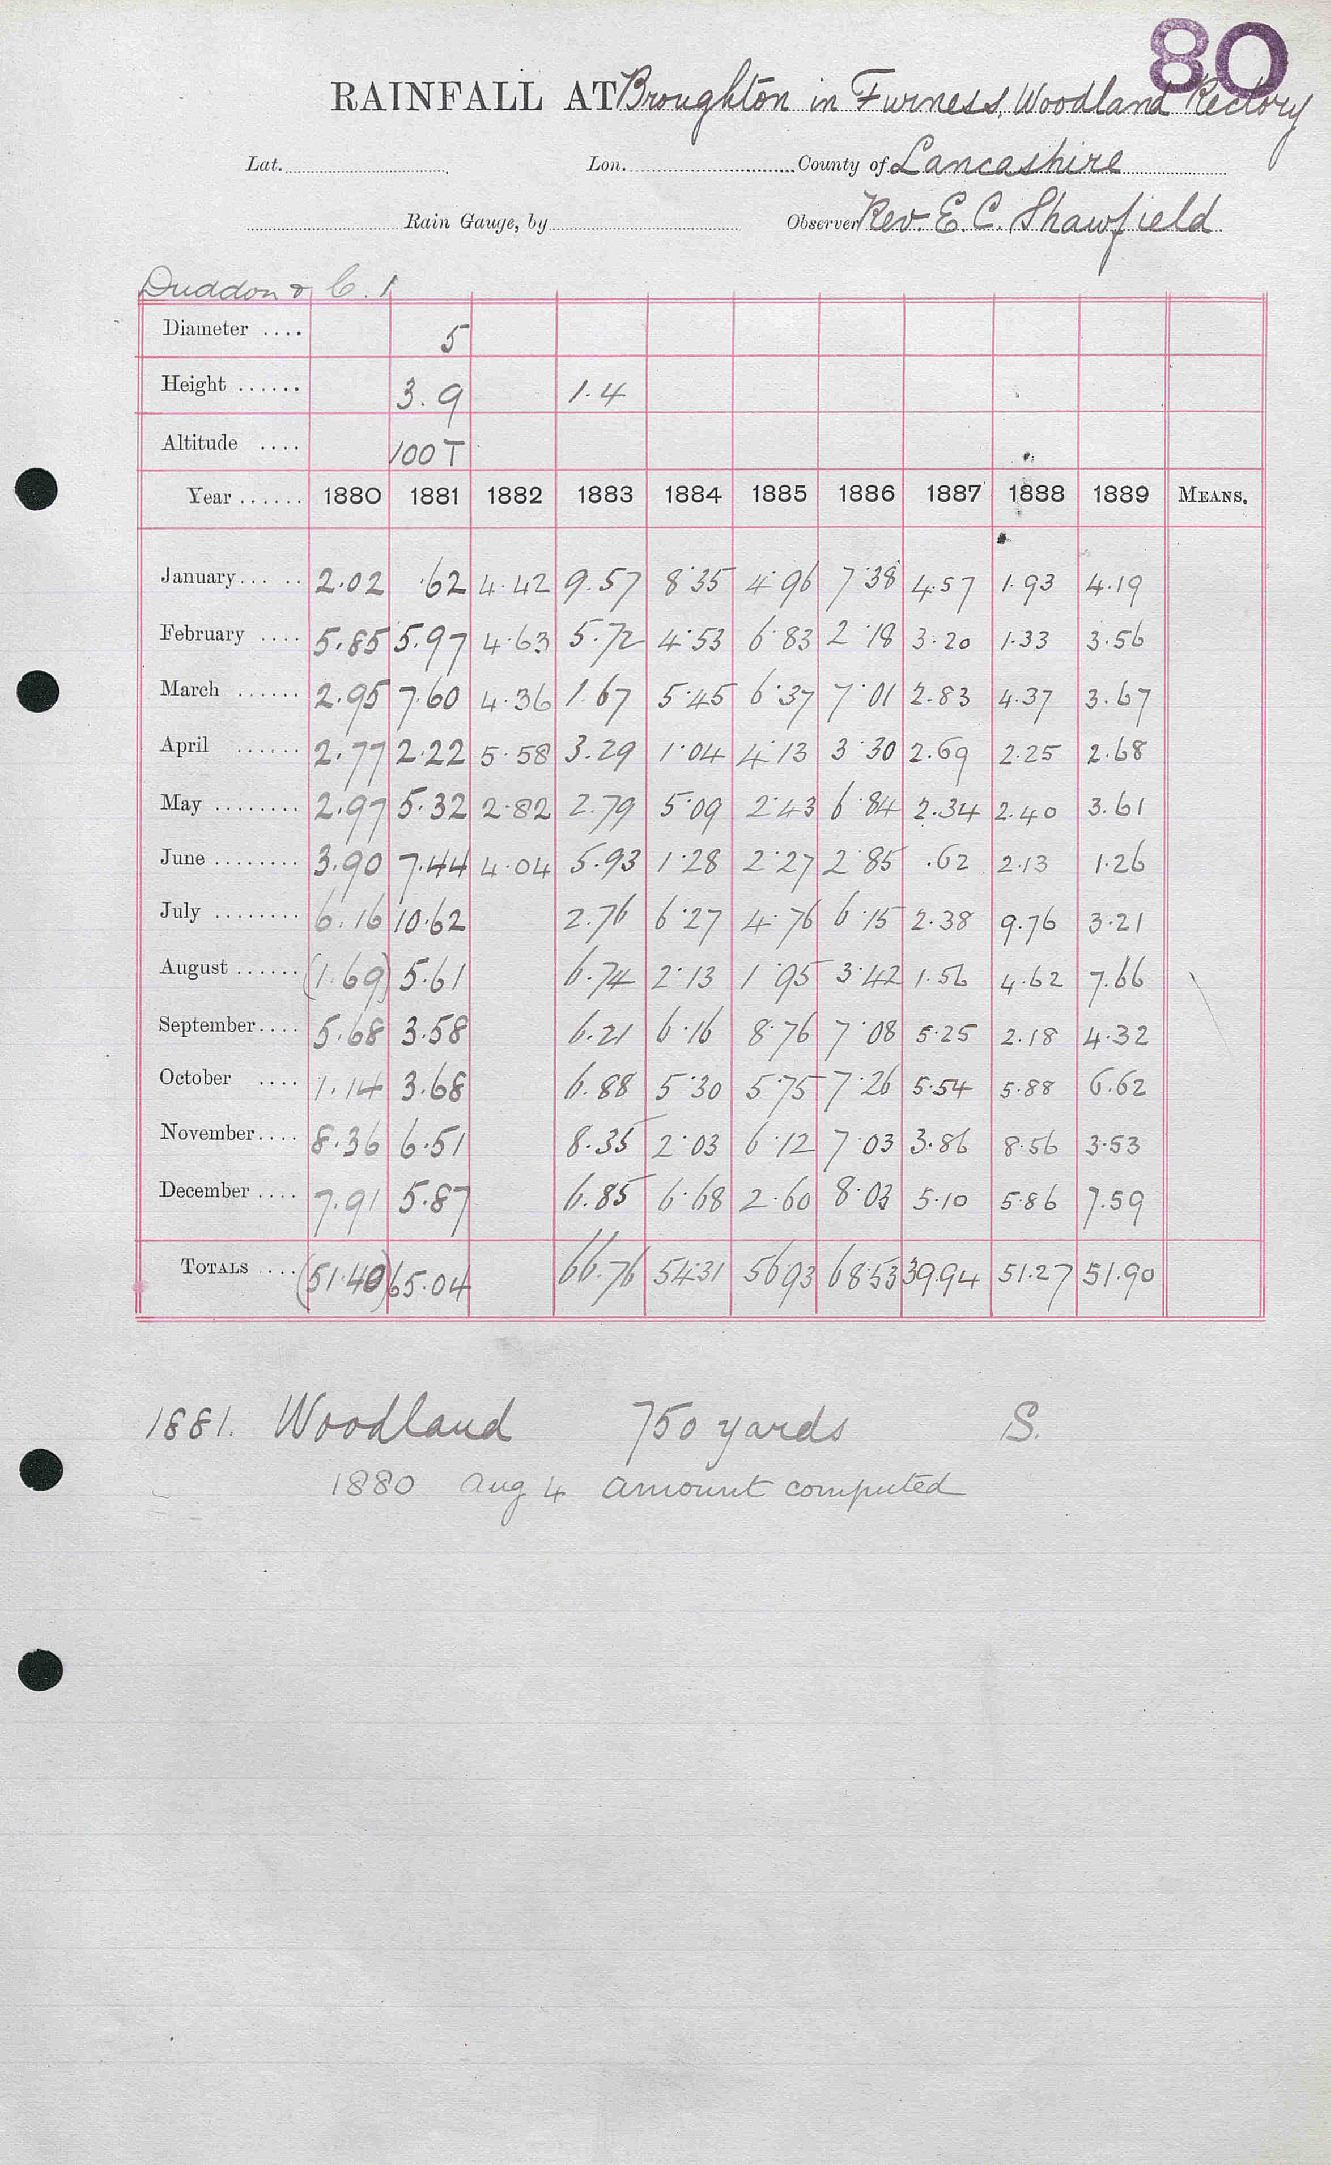 80
RAINFALL AT Broughton in Furness, Woodland Rectory
Lat. Lon. County of Lancashire
Rain Gauge, by Observer Rev. E. C. Shawfield
Duddon & C. 1
Diameter .... 5
Height ...... 3.9 1.4
Altitude .... 100 T
Year ...... 1880 1881 1882 1883 1884 1885 1886 1887 1888 1889 MEANS.
January ... .. 2.02 .62 4.42 9.57 8.35 4.96 7.38 4.57 1.93 4.19
February .... 5.85 5.97 4.63 5.72 4.53 6.83 2.18 3.20 1.33 3.56
March ...... 2.95 7.60 4.36 1.67 5.45 6.37 7.01 2.83 4.37 3.67
April ...... 2.77 2.22 5.58 3.29 1.04 4.13 3.30 2.69 2.25 2.68
May ........ 2.97 5.32 2.82 2.79 5.09 2.43 6.84 2.34 2.40 3.61
June ........ 3.90 7.44 4.04 5.93 1.28 2.27 2.85 .62 2.13 1.26
July ........ 6.16 10.62 2.76 6.27 4.76 6.15 2.38 9.76 3.21
August ...... (1.69) 5.61 6.74 2.13 1.95 3.42 1.56 4.62 7.66
September .... 5.68 3.58 6.21 6.16 8.76 7.08 5.25 2.18 4.32
October .... 1.14 3.68 6.88 5.30 5.75 7.26 5.54 5.88 6.62
November .... 8.36 6.51 8.35 2.03 6.12 7.03 3.86 8.56 3.53
December .... 7.91 5.87 6.85 6.68 2.60 8.03 5.10 5.86 7.59
TOTALS .... (51.40) 65.04 66.76 54.31 56.93 68.53 39.94 51.27 51.90
1881. Woodland 750 yards S.
1880 Aug 4 amount computed